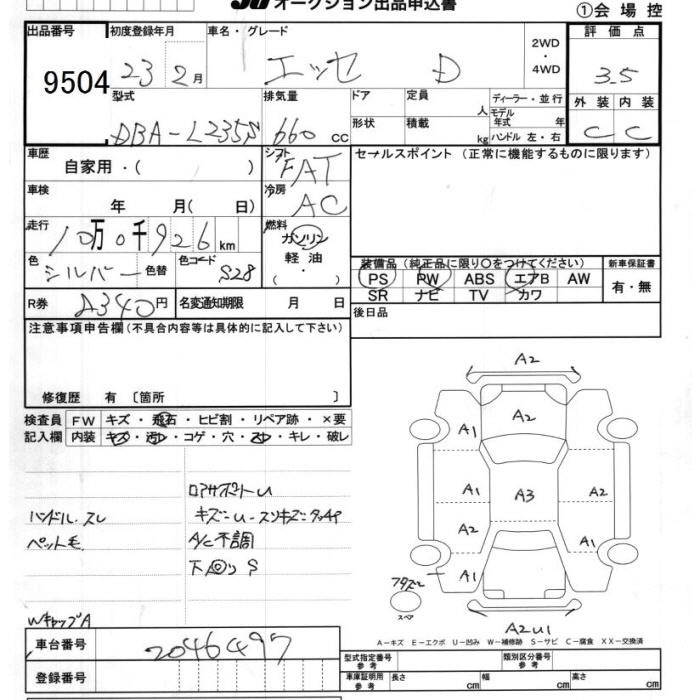 オークション出品申込書
①会場控
出品番号 9504
初度登録年月 23 2月
車名・グレード エッセ D
2WD・4WD
評価点 3.5
外装 内装
C C
型式 DBA-L235S
排気量 660 cc
ドア 定員 人
形状 積載 kg
ディーラー・並行
モデル年式 年
ハンドル 左・右
車歴 自家用・( )
シフト FAT
セールスポイント (正常に機能するものに限ります)
車検 年 月( 日)
冷房 AC
走行 10万0千926km
燃料 ガソリン 軽油・( )
色 シルバー 色替
色コード S28
装備品(純正品に限り○をつけてください)
PS PW ABS エアB AW
SR ナビ TV カワ
新車保証書 有・無
R券 A340円
名変通知期限 月 日
後日品
注意事項申告欄(不具合内容等は具体的に記入して下さい)
修復歴 有 〔箇所 〕
検査員記入欄
FW キズ・飛石・ヒビ割・リペア跡・×要
内装 キズ・汚レ・コゲ・穴・スレ・キレ・破レ
リアサポートU
ハンドル スレ
キズ=U・スソキズ=タッチP
ペット毛
A/C不調
下回りS
WキャップA
車台番号 2046497
登録番号
A2
A1 A2
A1 A3 A2
A2
A1 A1
スペア
A2U1
A-キズ E-エクボ U-凹み W-補修跡 S-サビ C-腐食 XX-交換済
型式指定番号 参考
類別区分番号 参考
車庫証明用 参考 長さ cm 幅 cm 高さ cm